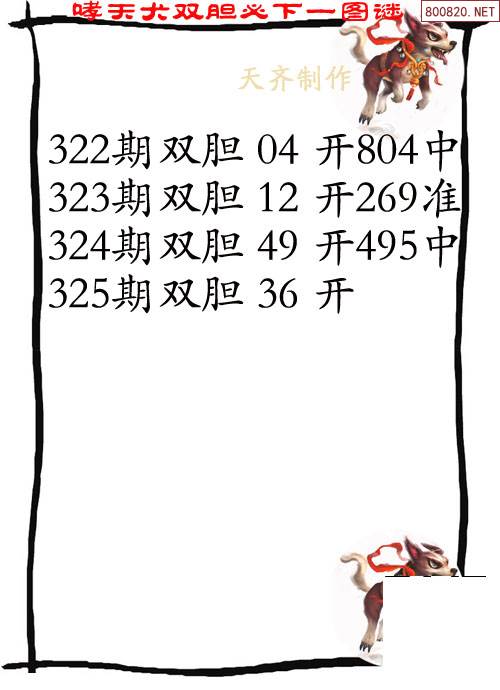 哮天犬双胆必下一图谜
800820.NET
天齐制作
322期双胆 04 开804中
323期双胆 12 开269准
324期双胆 49 开495中
325期双胆 36 开